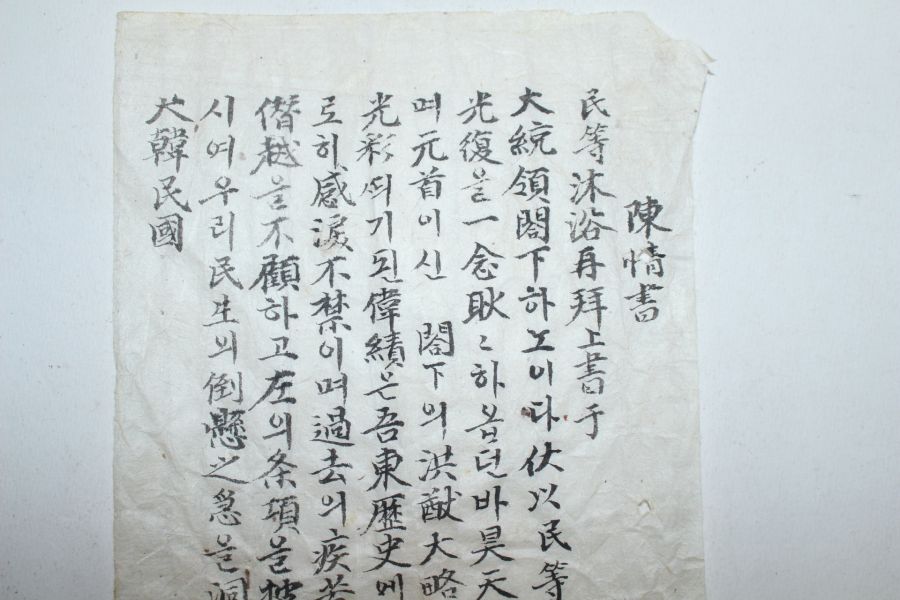 陳情書
民等沐浴再拜上書于
大統領閣下하노이다伏以民等
光復을一念耿々하옵던바昊天
며元首이신 閣下의洪猷大略
光彩띄기된偉績은吾東歷史에
로히感淚不禁이며過去의疾苦
僭越을不顧하고左의条項을披
시여우리民生의倒懸之急을洞
大韓民國